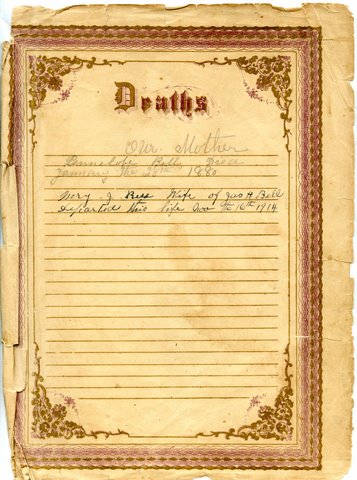 Deaths
Our Mother
Pennelope Bell Died
January the 28th 1880
Mary J Bell Wife of Jas A Bell
Departed this life Nov the 16th 1914